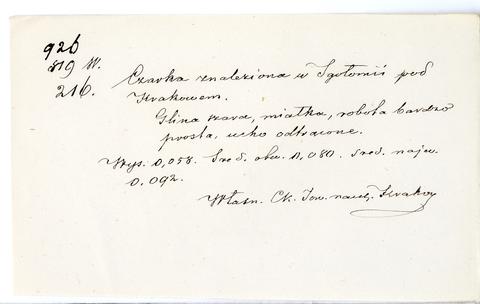 926
819 W.
216.
Czarka znaleziona w Igołomii pod
Krakowem.
Glina szara, miałka, robota bardzo
prosta, ucho odtrącone.
Wys. 0,058. Śred. otw. 0,080. Śred. najw.
0.092.
Własn. Ck. Tow. nauk. Krakow